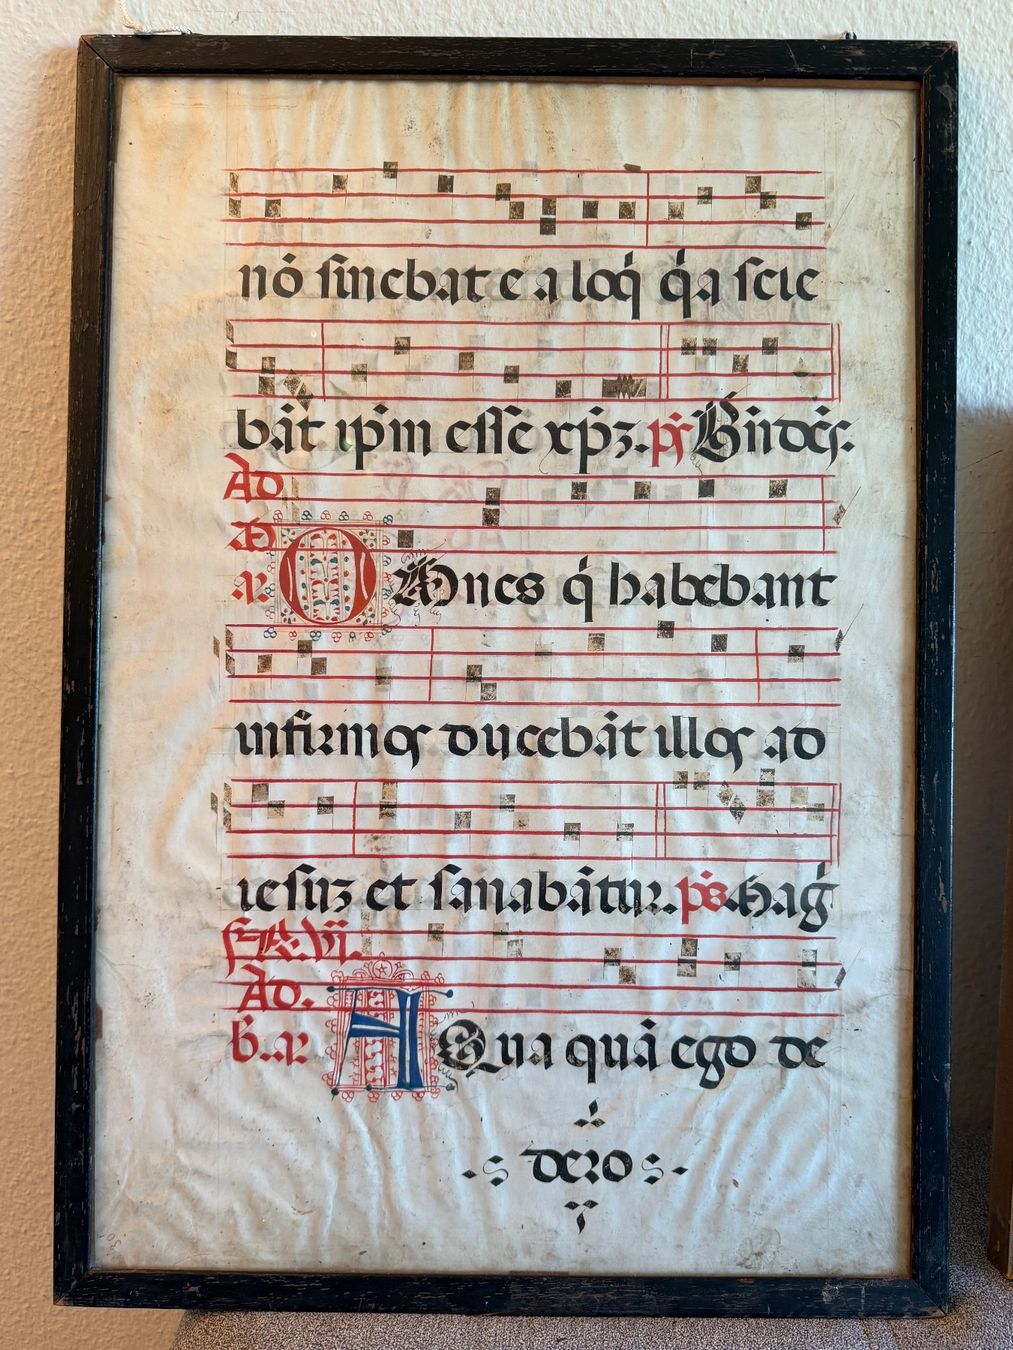 nō sinebat e a loq̇ q̇a scie
bāt ip̄m esse xp̄ꝫ. ps̄ Bn̄dēs.
Ad
O Mnes q̇ habebant
infirmos ducebāt illos ad
iesuꝫ et sanabātur. ps̄. Maḡ
Ad.
b. ar A Qua quā ego de
dero